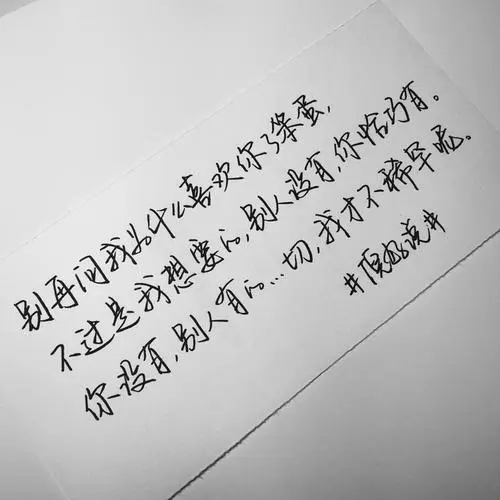 别再问我为什么喜欢你了笨蛋,
不过是我想要的,别人没有,你恰巧有。
你没有,别人有的...一切,我才不稀罕呢。